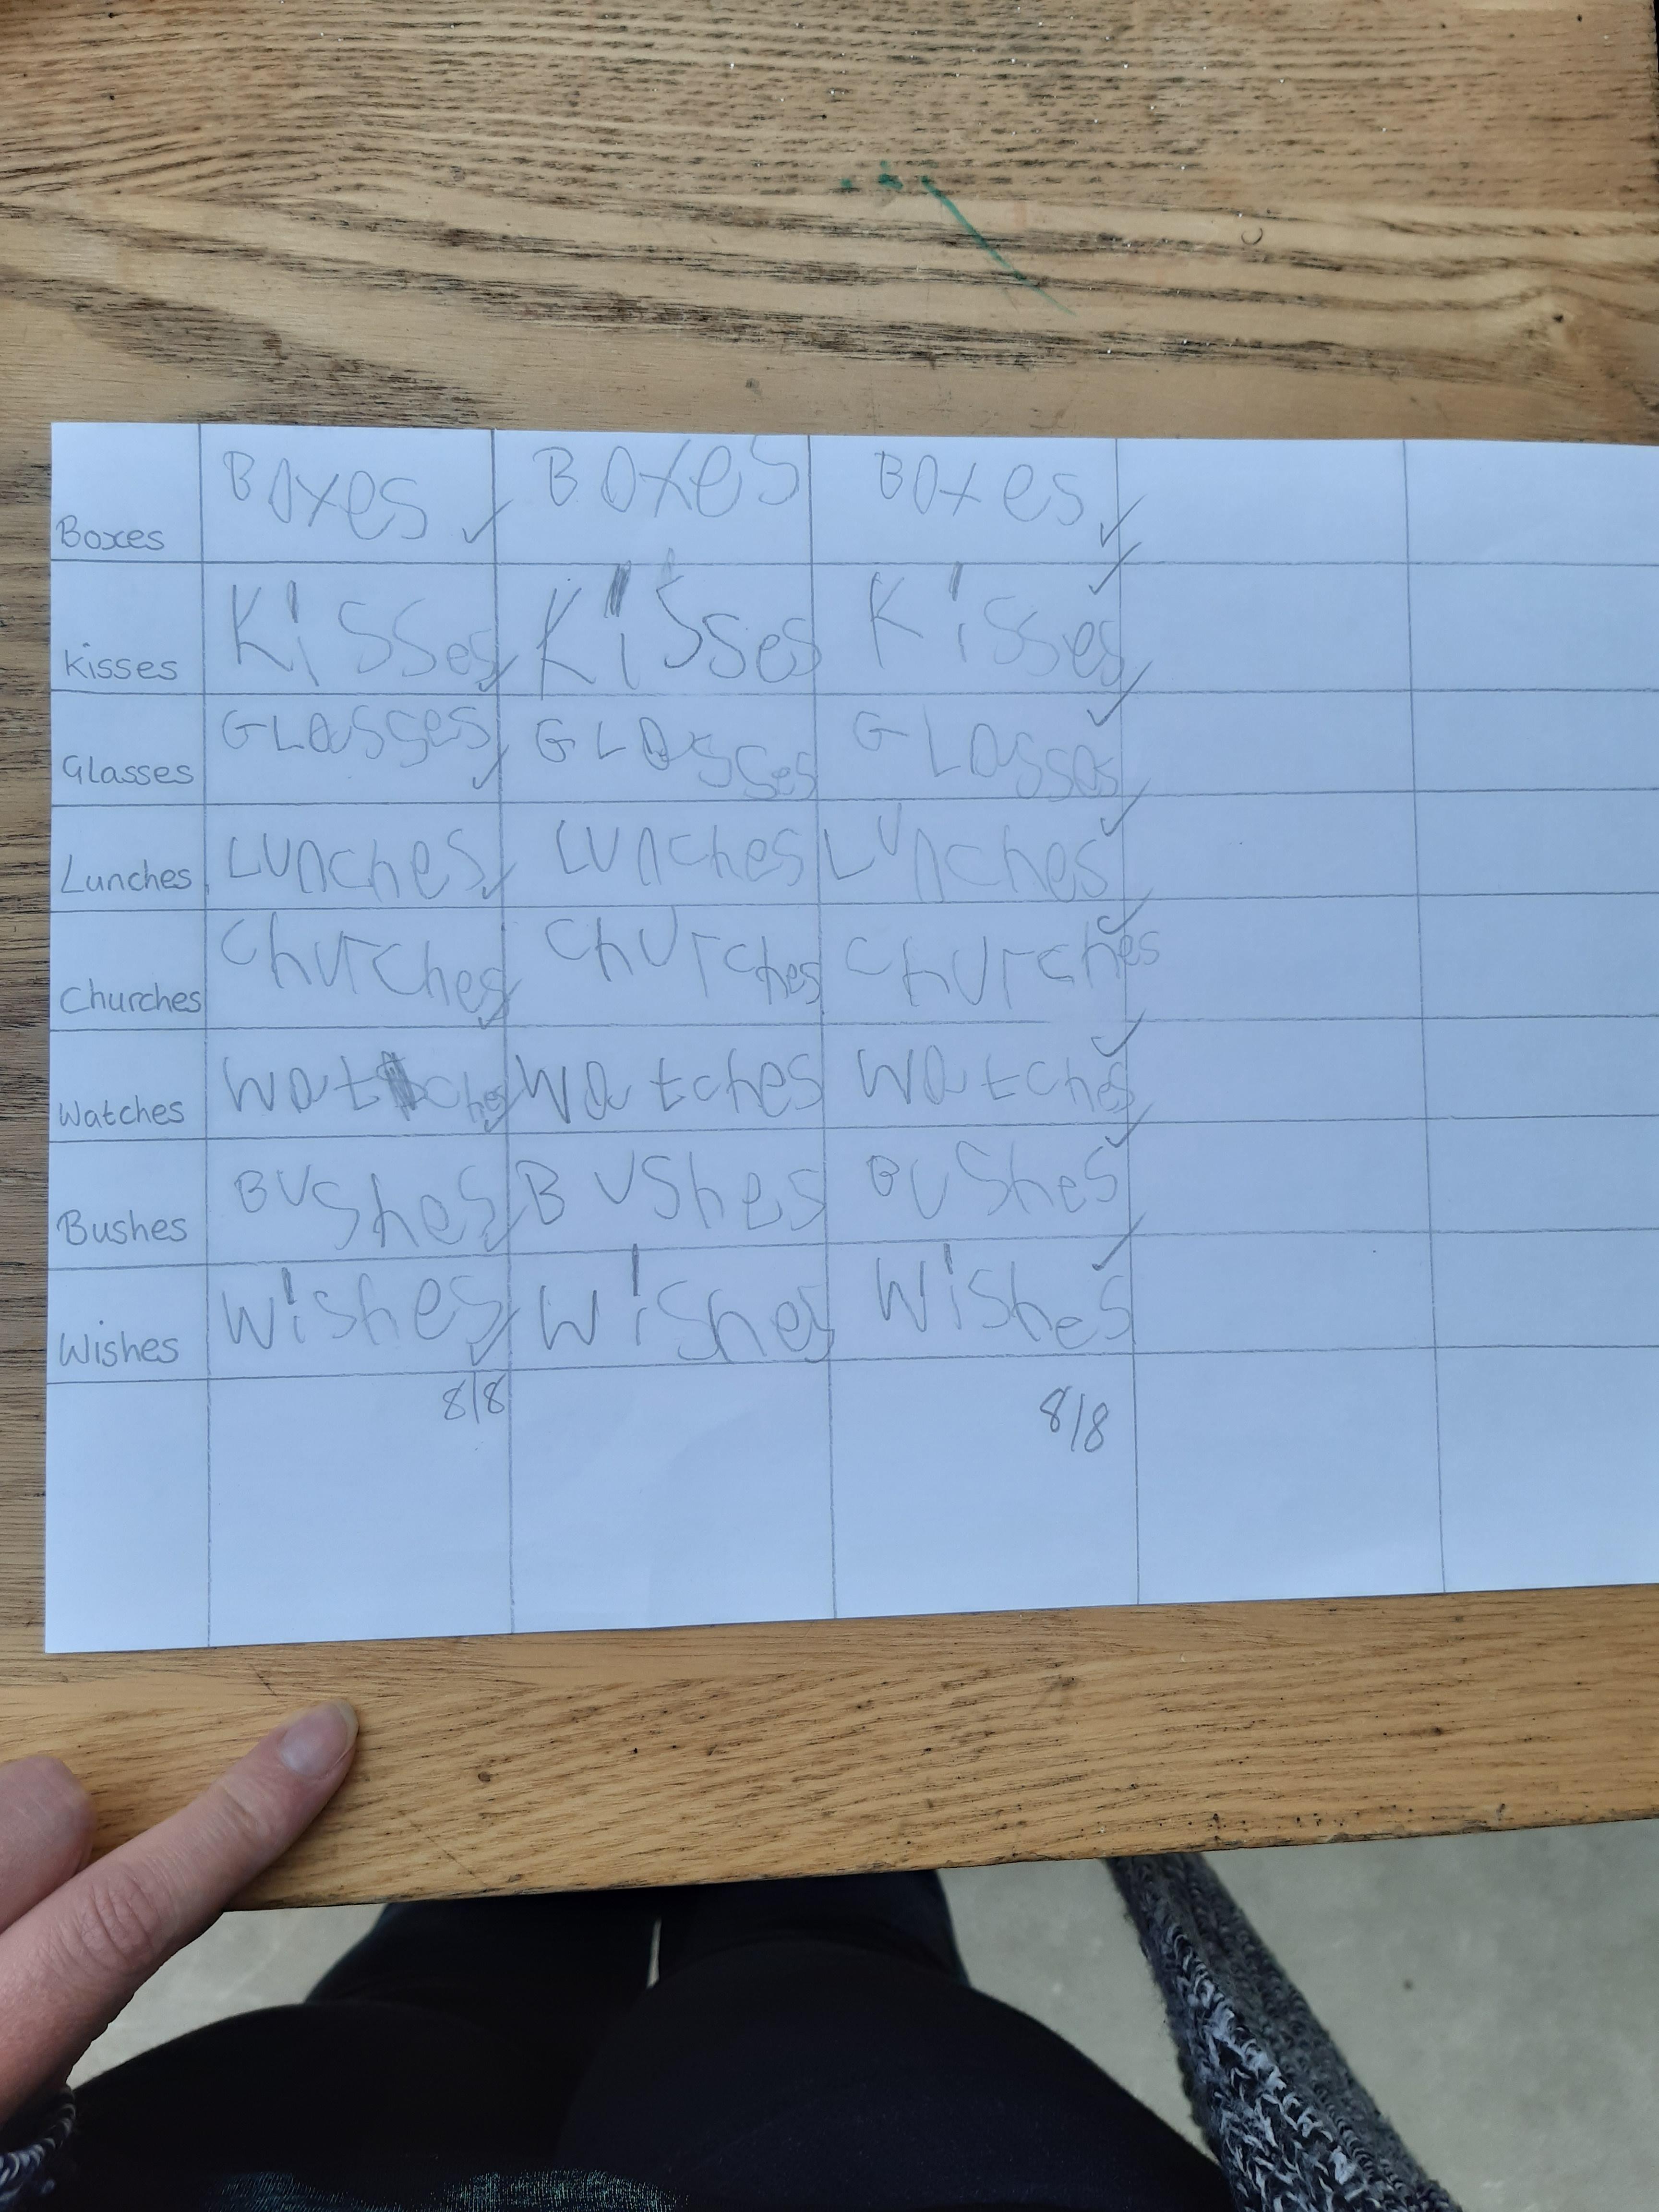 Boxes Boxes Boxes Boxes
Kisses Kisses Kisses Kisses
Glasses GLasses GLasses GLasses
Lunches Lunches Lunches Lunches
Churches Churches Churches Churches
Watches Watches Watches Watches
Bushes Bushes Bushes Bushes
Wishes Wishes Wishes Wishes
8/8 8/8